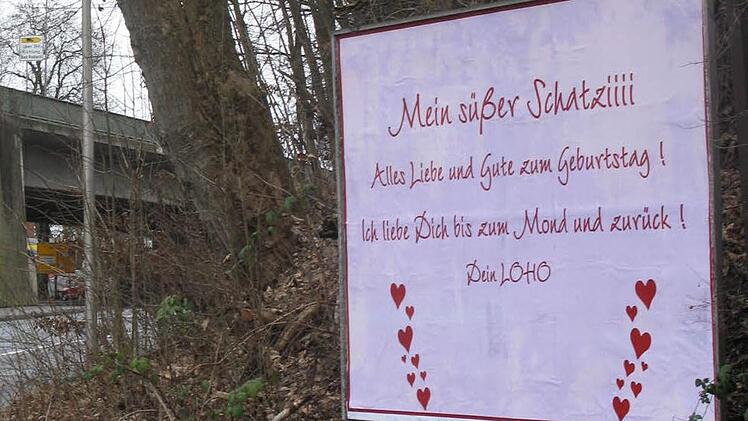 Mein süßer Schatziiii
Alles Liebe und Gute zum Geburtstag !
Ich liebe Dich bis zum Mond und zurück !
Dein LOHO